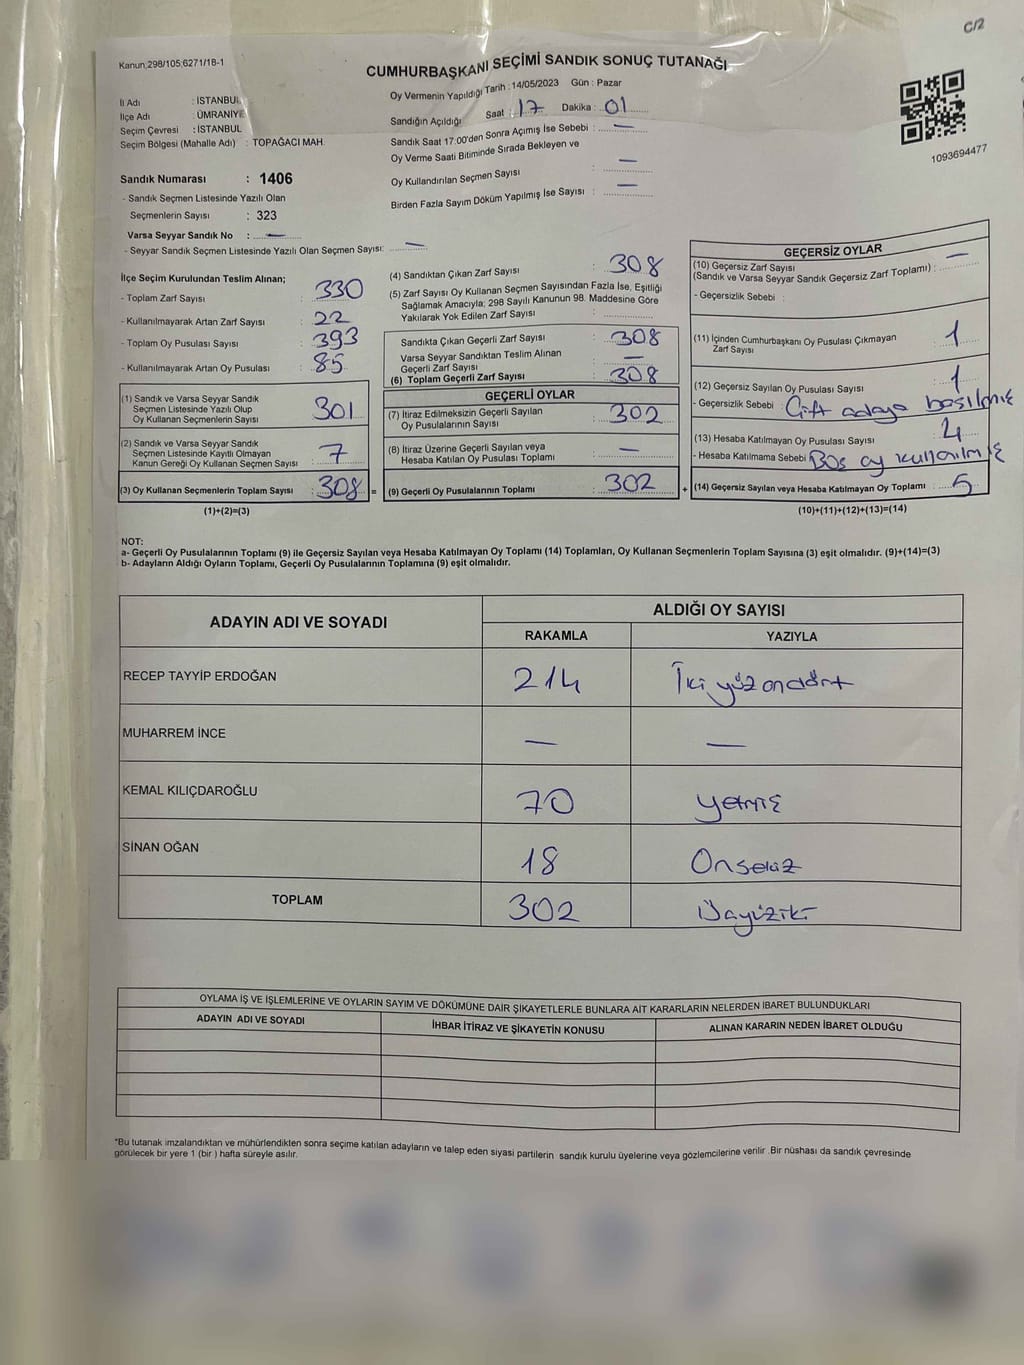 C/2
Kanun,298/105;6271/18-1
CUMHURBAŞKANI SEÇİMİ SANDIK SONUÇ TUTANAĞI
Oy Vermenin Yapıldığı Tarih : 14/05/2023 Gün : Pazar
İl Adı : İSTANBUL
İlçe Adı : ÜMRANİYE
Seçim Çevresi : İSTANBUL
Seçim Bölgesi (Mahalle Adı) : TOPAĞACI MAH.
Sandığın Açıldığı Saat : 17 Dakika : 01
Sandık Saat 17:00'den Sonra Açımış İse Sebebi : —
Oy Verme Saati Bitiminde Sırada Bekleyen ve
Oy Kullandırılan Seçmen Sayısı : —
Birden Fazla Sayım Döküm Yapılmış İse Sayısı : —
1093694477
Sandık Numarası : 1406
- Sandık Seçmen Listesinde Yazılı Olan
Seçmenlerin Sayısı : 323
Varsa Seyyar Sandık No : —
- Seyyar Sandık Seçmen Listesinde Yazılı Olan Seçmen Sayısı: —
İlçe Seçim Kurulundan Teslim Alınan;
- Toplam Zarf Sayısı : 330
- Kullanılmayarak Artan Zarf Sayısı : 22
- Toplam Oy Pusulası Sayısı : 393
- Kullanılmayarak Artan Oy Pusulası : 85
(1) Sandık ve Varsa Seyyar Sandık
Seçmen Listesinde Yazılı Olup
Oy Kullanan Seçmenlerin Sayısı : 301
(2) Sandık ve Varsa Seyyar Sandık
Seçmen Listesinde Kayıtlı Olmayan
Kanun Gereği Oy Kullanan Seçmen Sayısı : 7
(3) Oy Kullanan Seçmenlerin Toplam Sayısı : 308 =
(1)+(2)=(3)
(4) Sandıktan Çıkan Zarf Sayısı : 308
(5) Zarf Sayısı Oy Kullanan Seçmen Sayısından Fazla İse, Eşitliği
Sağlamak Amacıyla; 298 Sayılı Kanunun 98. Maddesine Göre
Yakılarak Yok Edilen Zarf Sayısı :
Sandıkta Çıkan Geçerli Zarf Sayısı : 308
Varsa Seyyar Sandıktan Teslim Alınan
Geçerli Zarf Sayısı : —
(6) Toplam Geçerli Zarf Sayısı : 308
GEÇERLİ OYLAR
(7) İtiraz Edilmeksizin Geçerli Sayılan
Oy Pusulalarının Sayısı : 302
(8) İtiraz Üzerine Geçerli Sayılan veya
Hesaba Katılan Oy Pusulası Toplamı : —
(9) Geçerli Oy Pusulalarının Toplamı : 302 +
GEÇERSİZ OYLAR
(10) Geçersiz Zarf Sayısı
(Sandık ve Varsa Seyyar Sandık Geçersiz Zarf Toplamı) : —
- Geçersizlik Sebebi :
(11) İçinden Cumhurbaşkanı Oy Pusulası Çıkmayan
Zarf Sayısı : 1
(12) Geçersiz Sayılan Oy Pusulası Sayısı : 1
- Geçersizlik Sebebi : Çift adaya basılmış
(13) Hesaba Katılmayan Oy Pusulası Sayısı : 4
- Hesaba Katılmama Sebebi : Boş oy kullanılmış
(14) Geçersiz Sayılan veya Hesaba Katılmayan Oy Toplamı : 5
(10)+(11)+(12)+(13)=(14)
NOT:
a- Geçerli Oy Pusulalarının Toplamı (9) ile Geçersiz Sayılan veya Hesaba Katılmayan Oy Toplamı (14) Toplamları, Oy Kullanan Seçmenlerin Toplam Sayısına (3) eşit olmalıdır. (9)+(14)=(3)
b- Adayların Aldığı Oyların Toplamı, Geçerli Oy Pusulalarının Toplamına (9) eşit olmalıdır.
ADAYIN ADI VE SOYADI
ALDIĞI OY SAYISI
RAKAMLA YAZIYLA
RECEP TAYYİP ERDOĞAN 214 İki yüz ondört
MUHARREM İNCE — —
KEMAL KILIÇDAROĞLU 70 yetmiş
SİNAN OĞAN 18 Onsekiz
TOPLAM 302 Üçyüziki
OYLAMA İŞ VE İŞLEMLERİNE VE OYLARIN SAYIM VE DÖKÜMÜNE DAİR ŞİKAYETLERLE BUNLARA AİT KARARLARIN NELERDEN İBARET BULUNDUKLARI
ADAYIN ADI VE SOYADI İHBAR İTİRAZ VE ŞİKAYETİN KONUSU ALINAN KARARIN NEDEN İBARET OLDUĞU
*Bu tutanak imzalandıktan ve mühürlendikten sonra seçime katılan adayların ve talep eden siyasi partilerin sandık kurulu üyelerine veya gözlemcilerine verilir .Bir nüshası da sandık çevresinde
görülecek bir yere 1 (bir ) hafta süreyle asılır.